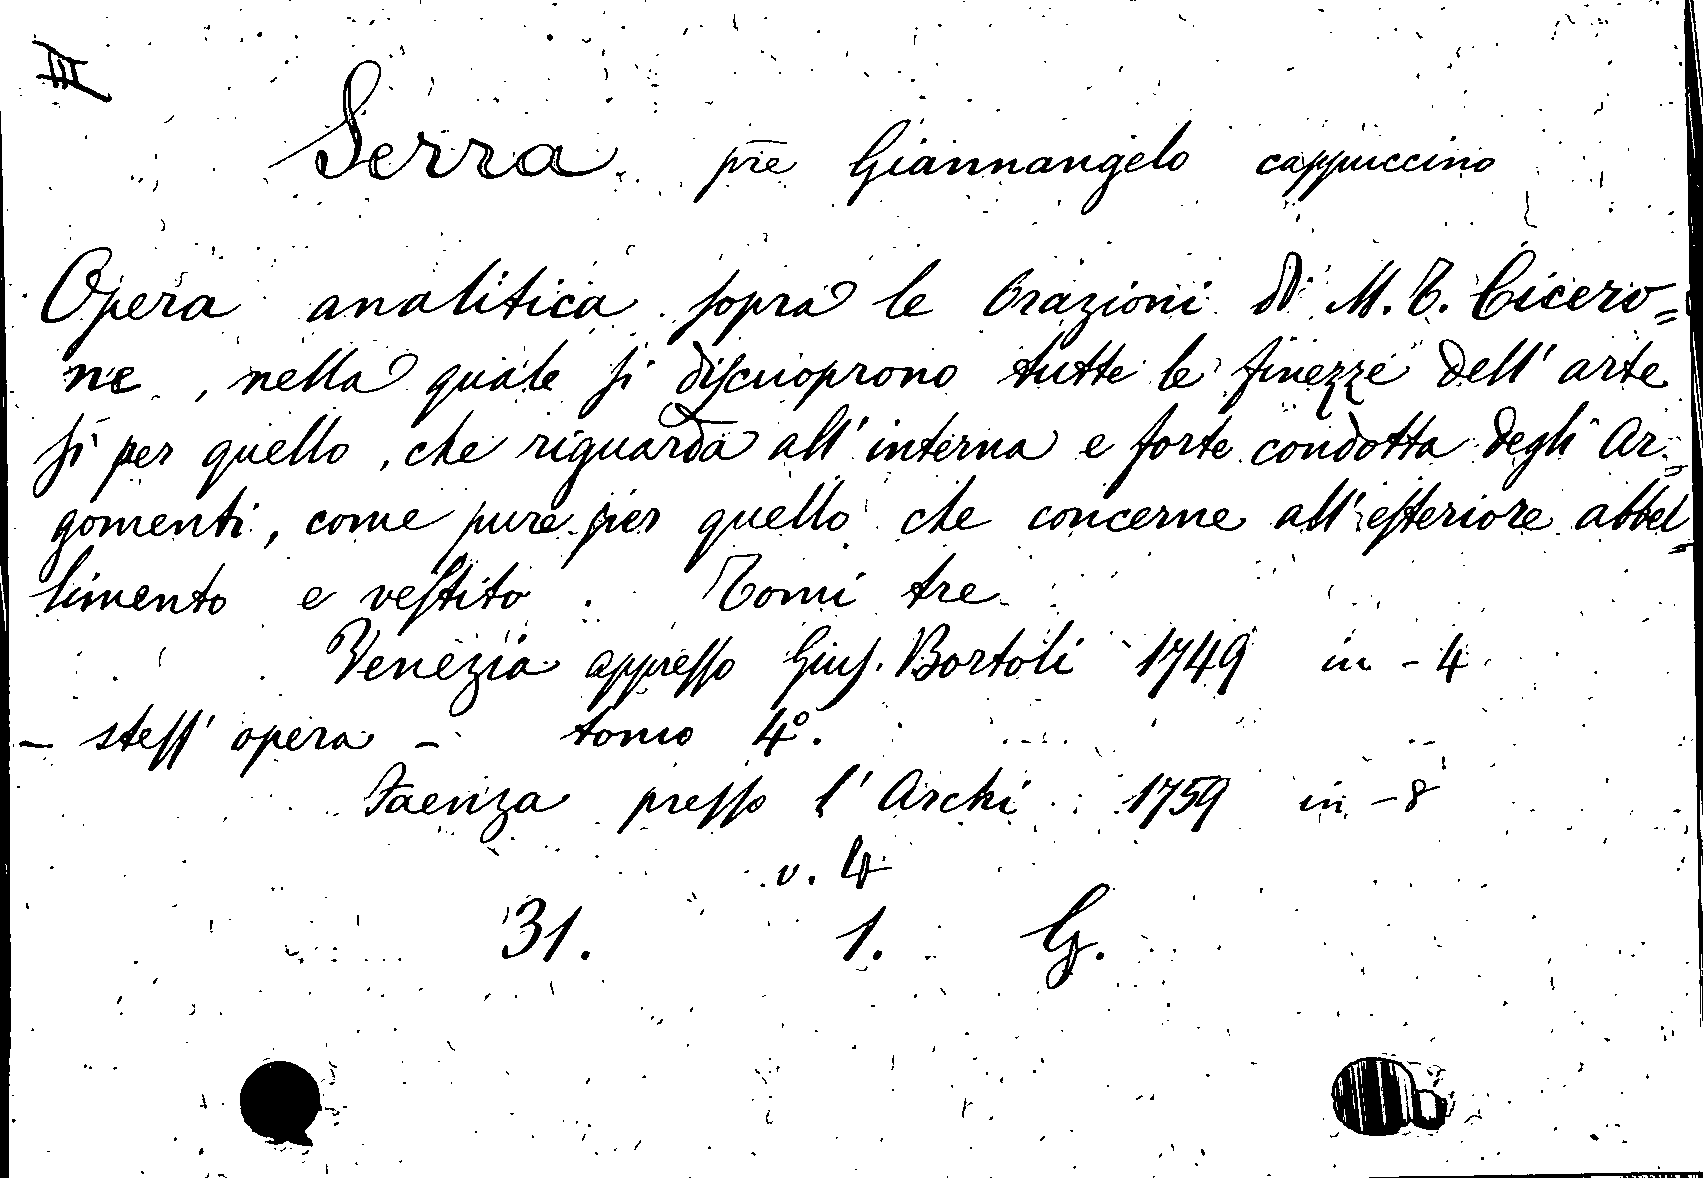 III
Serra p̄re Giannangelo cappuccino
Opera analitica sopra le Orazioni di M. T. Cicero=
ne, nella quale si discuoprono tutte le finezze dell'arte
sì per quello, che riguarda all'interna e forte condotta degli Ar=
gomenti, come pure per quello che concerne all'esteriore abbel=
limento e vestito. Tomi tre
Venezia appresso Gius. Bortoli 1749 in-4
- stess'opera - tomo 4°.
Faenza presso l'Archi 1759 in-8
v. 4
31. 1. G.